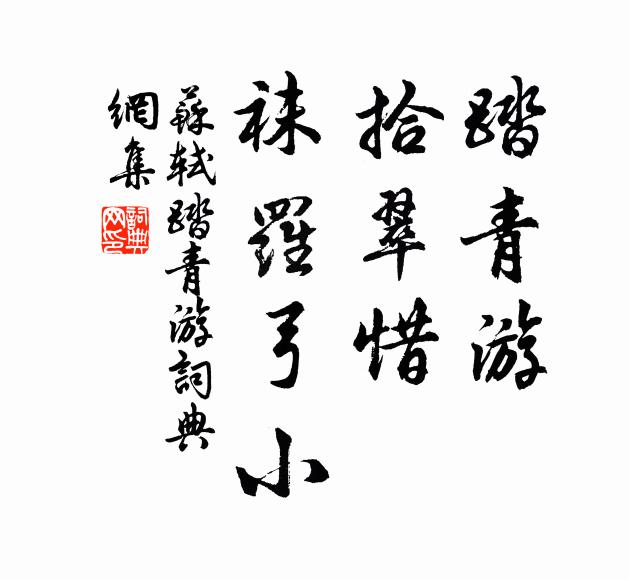 踏青游
拾翠惜
袜羅弓小
蘇軾踏青游詞典
網集
詞典
网印